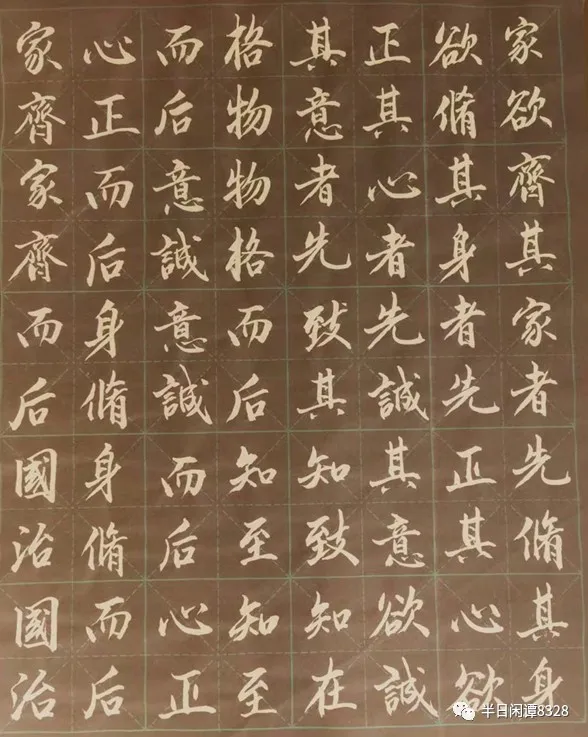 家欲齊其家者先脩其身
欲脩其身者先正其心欲
正其心者先誠其意欲誠
其意者先致其知致知在
格物物格而后知至知至
而后意誠意誠而后心正
心正而后身脩身脩而后
家齊家齊而后國治國治
半日闲谭8328